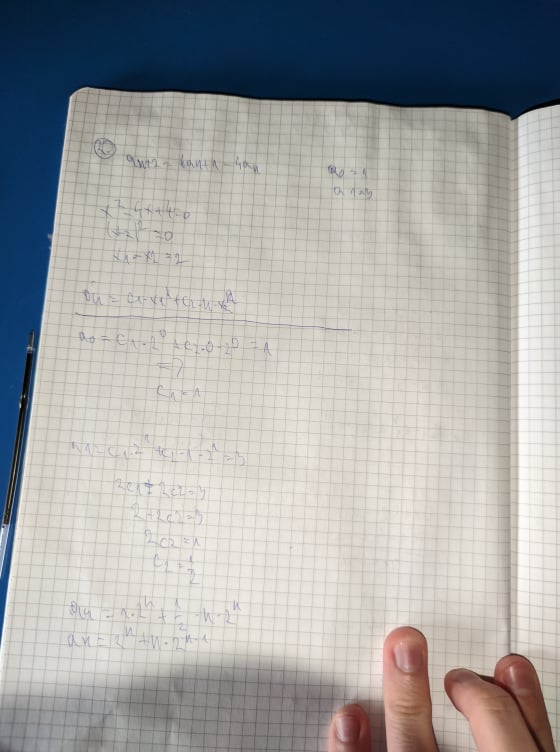 2. a_{n+2} = 4a_{n+1} - 4a_n a_0 = 1
a_1 = 3
x^2 - 4x + 4 = 0
(x-2)^2 = 0
x_1 = x_2 = 2
a_n = c_1 · x_1^n + c_2 · n · x_2^n
a_0 = c_1 · 2^0 + c_2 · 0 · 2^0 = 1
=>
c_1 = 1
a_1 = c_1 · 2^1 + c_2 · 1 · 2^1 = 3
2c_1 + 2c_2 = 3
2 + 2c_2 = 3
2c_2 = 1
c_2 = 1/2
a_n = 1 · 2^n + 1/2 · n · 2^n
a_n = 2^n + n · 2^{n-1}